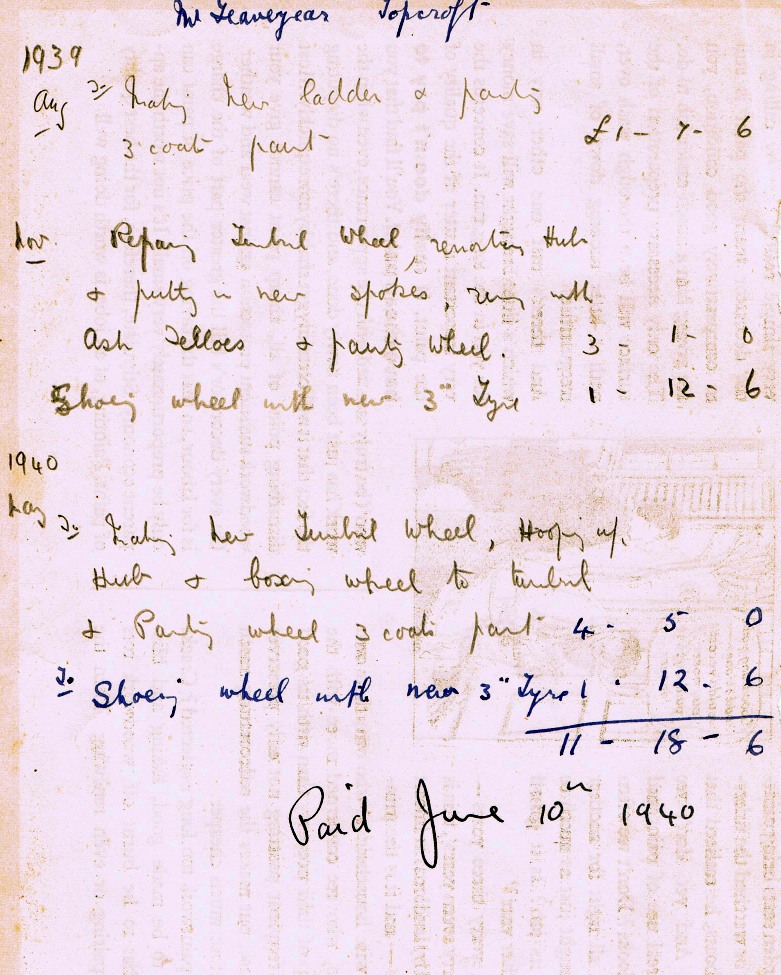 Mr Leaveyear Topcroft
1939
Aug To Making New ladder & painting
3 coats paint £1 - 7 - 6
Nov Repairing Tumbril Wheel, Hub
& putting in new spokes, ring with
Ash Felloes & painting wheel. 3 - 1 - 0
Shoeing wheel with new 3" Tyre 1 - 12 - 6
1940
May To Making New Tumbril Wheel, Hooping up,
Hub & boxing wheel to tumbril
& Painting wheel 3 coats paint 4 - 5 0
To Shoeing wheel with new 3" Tyre 1 - 12 - 6
11 - 18 - 6
Paid June 10th 1940